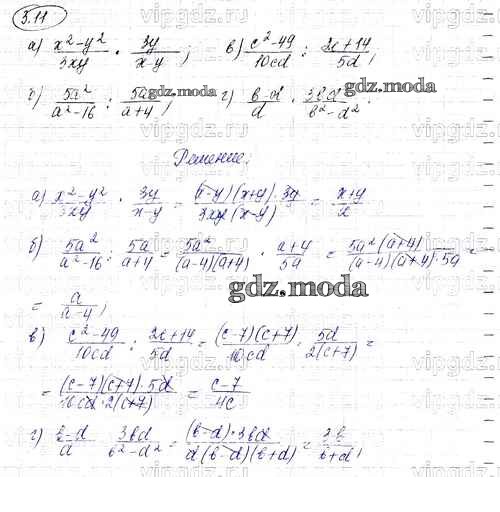 3.11
а) x²-y²/3xy · 3y/x-y ; в) c²-49/10cd : 2c+14/5d ;
б) 5a²/a²-16 : 5a/a+4 ; г) b-d/d · 3bd/b²-d² .
gdz.moz
gdz.moz
Решение:
а) x²-y²/3xy · 3y/x-y = (x-y)(x+y)·3y/3xy(x-y) = x+y/x
б) 5a²/a²-16 : 5a/a+4 = 5a²/(a-4)(a+4) · a+4/5a = 5a²(a+4)/(a-4)(a+4)·5a =
gdz.moz
= a/a-4 ;
в) c²-49/10cd : 2c+14/5d = (c-7)(c+7)/10cd · 5d/2(c+7) =
= (c-7)(c+7)·5d/10cd·2(c+7) = c-7/4c
г) b-d/d 3bd/b²-d² = (b-d)·3bd/d(b-d)(b+d) = 3b/b+d ;
vipgdz.ru